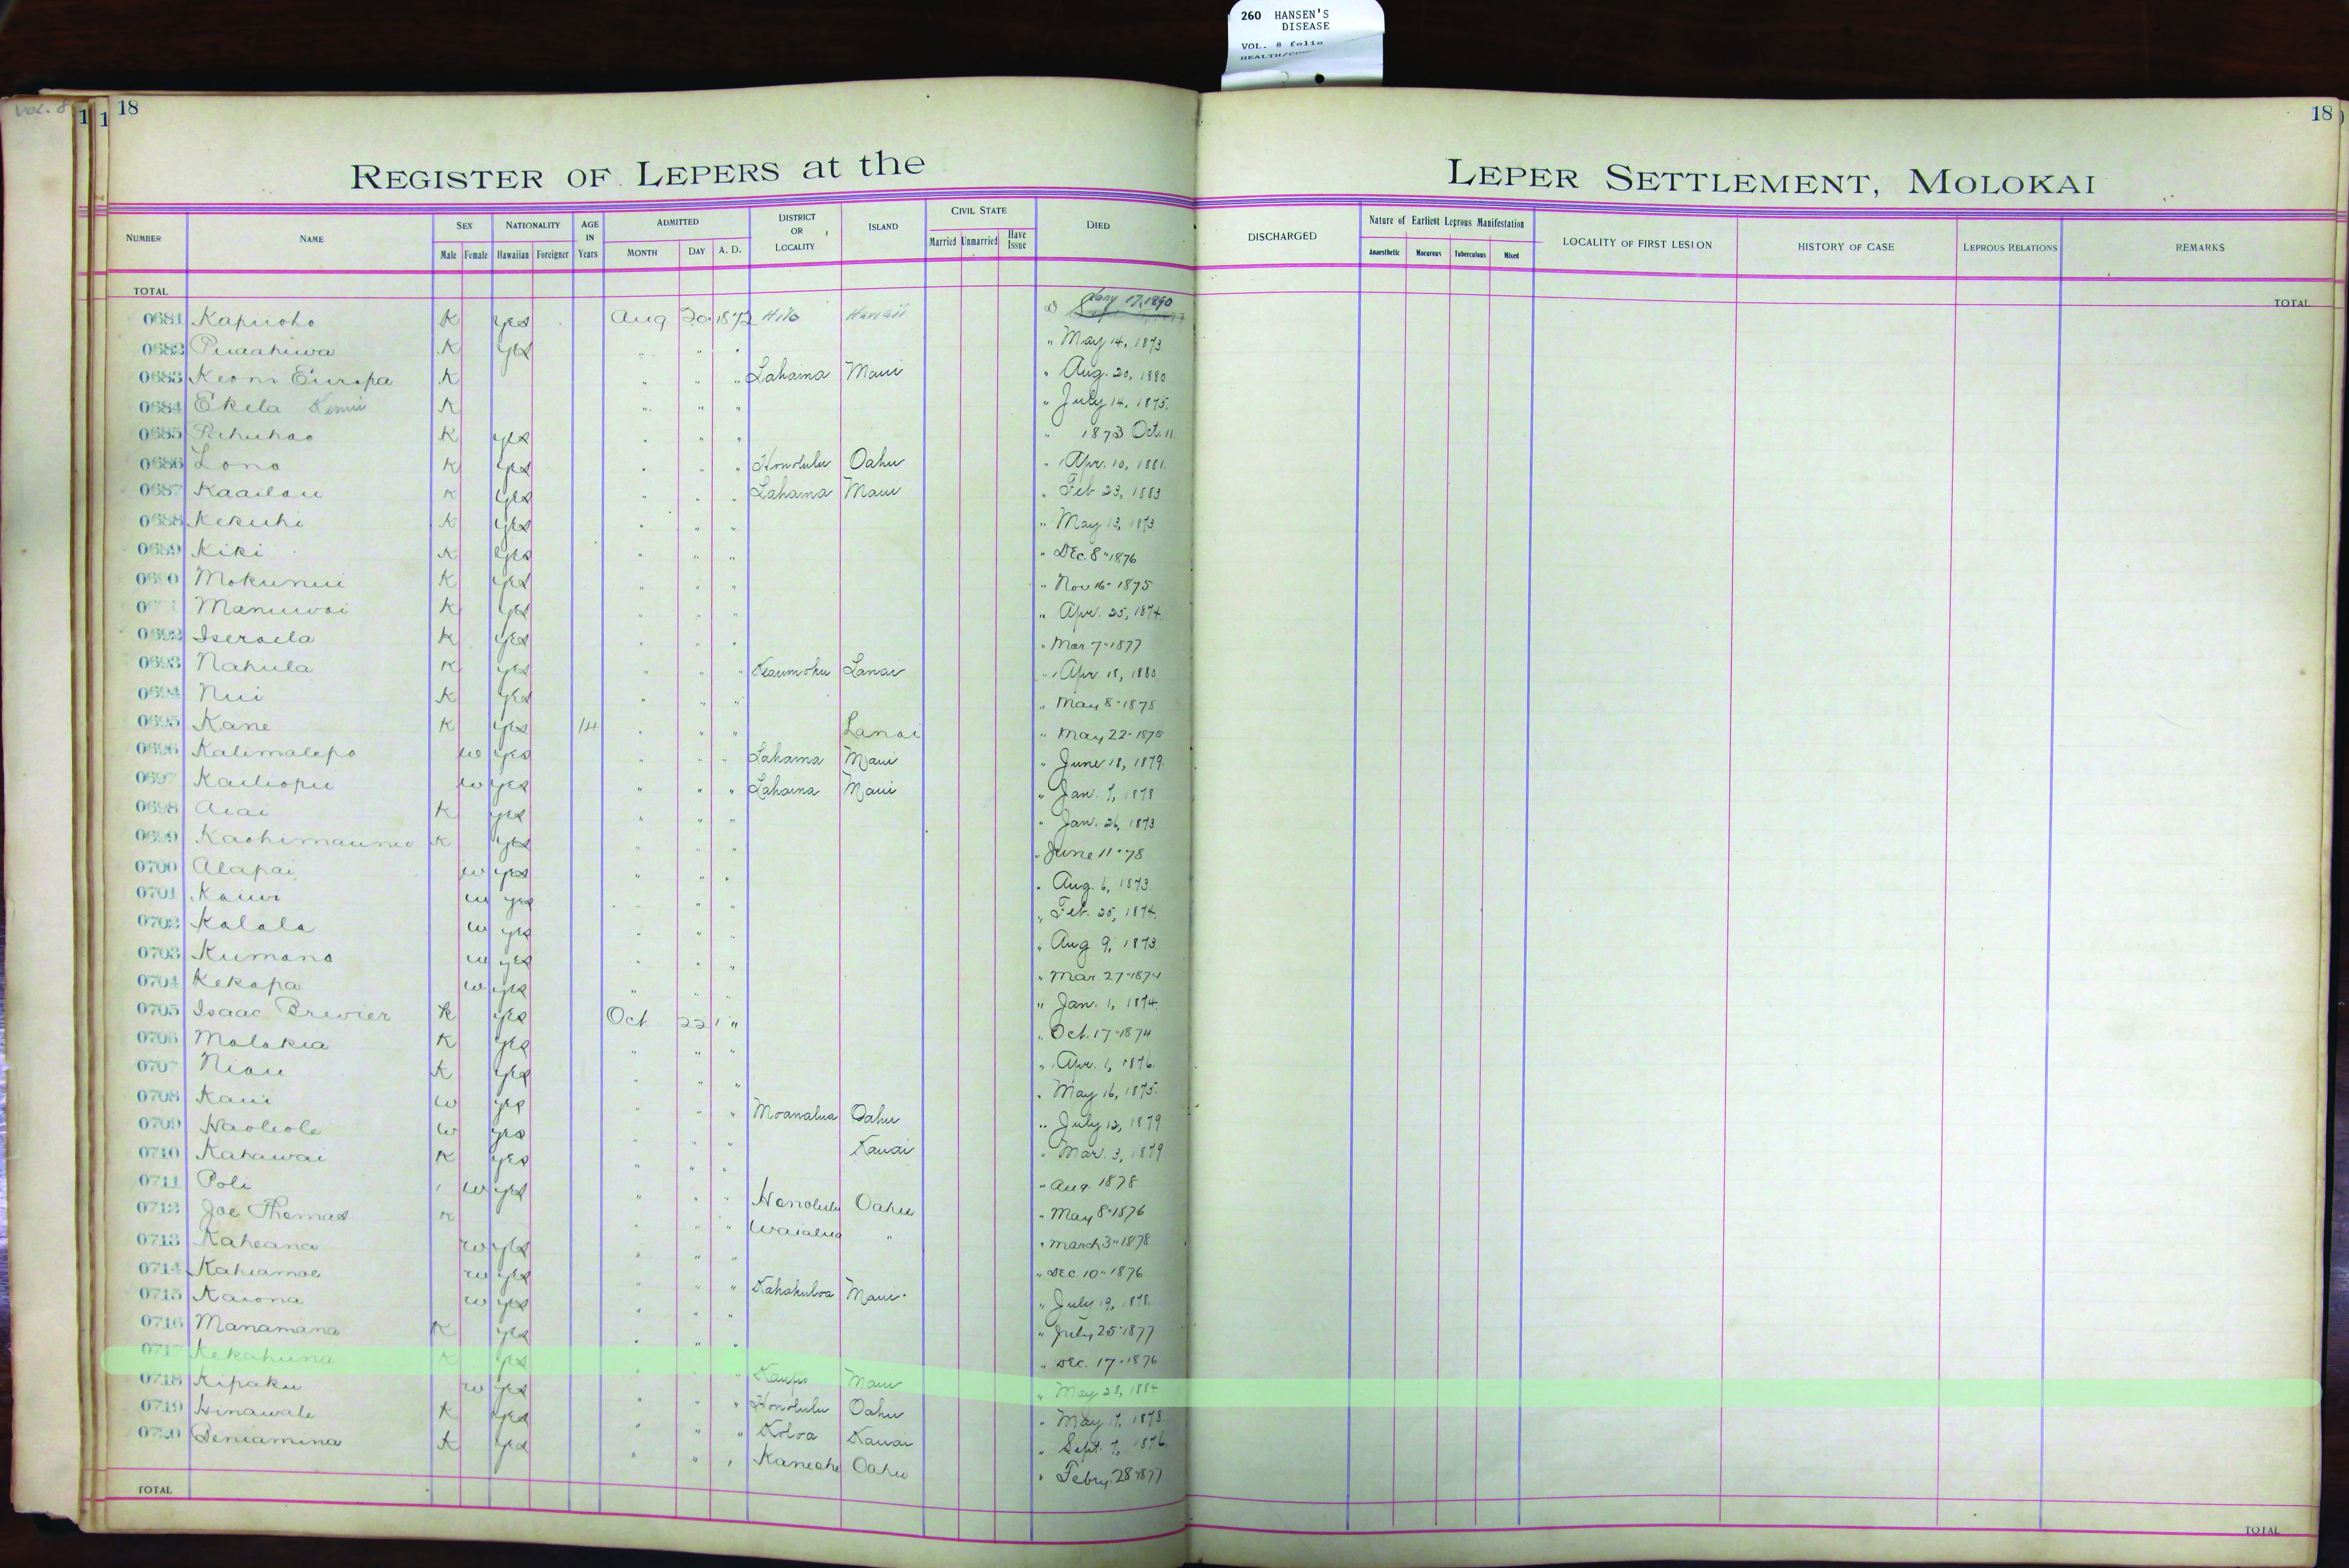 260 HANSEN'S
DISEASE
VOL. 8 folio
VOL. 8
18
18
REGISTER OF LEPERS at the LEPER SETTLEMENT, MOLOKAI
NUMBER NAME SEX Male Female NATIONALITY Hawaiian Foreigner AGE IN Years ADMITTED MONTH DAY A. D. DISTRICT OR LOCALITY ISLAND CIVIL STATE Married Unmarried Have Issue DIED DISCHARGED Nature of Earliest Leprous Manifestation Anaesthetic Macurous Tuberculous Mixed LOCALITY OF FIRST LESION HISTORY OF CASE LEPROUS RELATIONS REMARKS
TOTAL TOTAL
0681 Kapuoho K yes Aug 20 1872 Hilo Hawaii Jany 17, 1890
0682 Puaahiwa K yes " " " " May 14, 1873
0683 Keoni Europa K " " " Lahaina Maui " Aug. 20, 1880
0684 Ekela K " " " " July 14, 1875.
0685 Pahuhao K yes " " " " 1873 Oct. 11.
0686 Lono K yes " " " Honolulu Oahu " Apr. 10, 1881.
0687 Kaailau K yes " " " Lahaina Maui " Feb 23, 1883
0688 Kekuhi K yes " " " " May 13, 1873
0689 Kiki K yes " " " " Dec. 8" 1876
0690 Mokunui K yes " " " " Nov 16- 1875
Manuwai K yes " " " " Apr. 25, 1874.
0692 Iseraela K yes " " " " Mar 7" 1877
0693 Nahula K yes " " " Keaumoku Lanai " Apr. 18, 1880
0694 Nui K yes " " " " May 8" 1875
0695 Kane K yes 14 " " " Lanai " May 22- 1875
0696 Kalimalepo w yes " " " Lahaina Maui " June 18, 1879.
0697 Kailiopu w yes " " " Lahaina Maui " Jan. 7, 1878
0698 Aiai K yes " " " " Jan. 26, 1873
0699 K yes " " " " June 11" 78
0700 Alapai w yes " " " " Aug. 6, 1873
0701 Kauwi w yes " " " " Feb. 25, 1874.
0702 Kalala w yes " " " " Aug 9, 1873.
0703 Kumano w yes " " " " Mar 27" 1874
0704 Kekapa w yes " " " " Jan. 1, 1874.
0705 Isaac Brewier K yes Oct 22 " " Oct. 17" 1874
0706 Molokia K yes " " " " Apr. 1, 1876.
0707 Niau K yes " " " " May 16, 1875.
0708 Kaui w yes " " " Moanalua Oahu " July 12, 1879
0709 Haoleole w yes " " " Kauai " Mar. 3, 1879
0710 Kahawai K yes " " " " Aug 1878
0711 Poli w yes " " " Honolulu Oahu " May 8" 1876
0712 Joe Thomas K " " " Waialua " " March 3" 1878
0713 Kaheana w yes " " " " Dec 10" 1876
0714 Kahiamoe w yes " " " Kahakuloa Maui " July 19, 1878.
0715 Kaiona w yes " " " " July 25" 1877
0716 Manamana K yes " " " " Dec. 17- 1876
0717 Kekahuna K yes " " " Kaupo Maui " May 28, 1884
0718 Kipaku w yes " " " Honolulu Oahu " May 17, 1878.
0719 Hinawale K yes " " " Koloa Kauai " Sept. 7, 1876
0720 Beniamina K yes " " " Kaneohe Oahu " Febry. 28" 1877
TOTAL TOTAL